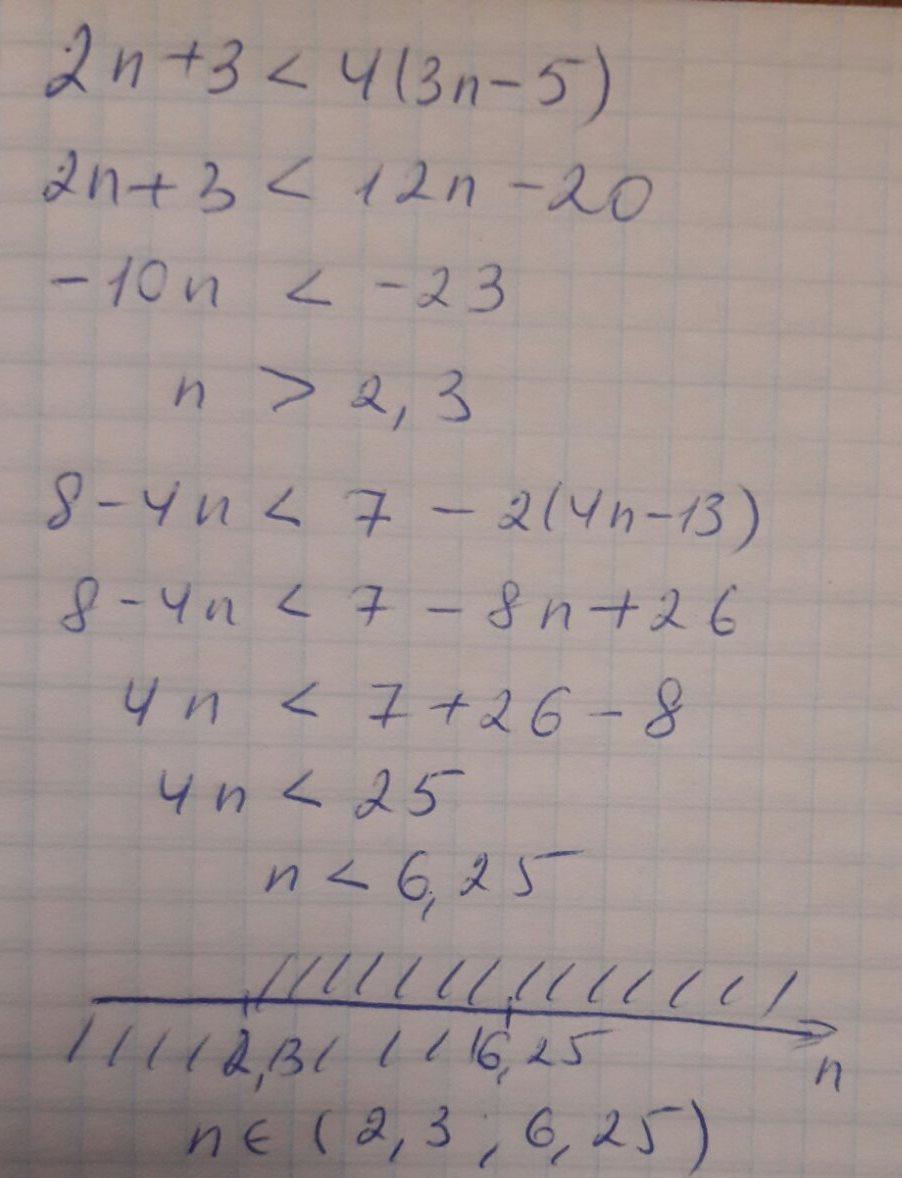 2n+3 < 4(3n-5)
2n+3 < 12n-20
-10n < -23
n > 2,3
8-4n < 7-2(4n-13)
8-4n < 7-8n+26
4n < 7+26-8
4n < 25
n < 6,25
2,3 6,25 n
n∈(2,3; 6,25)